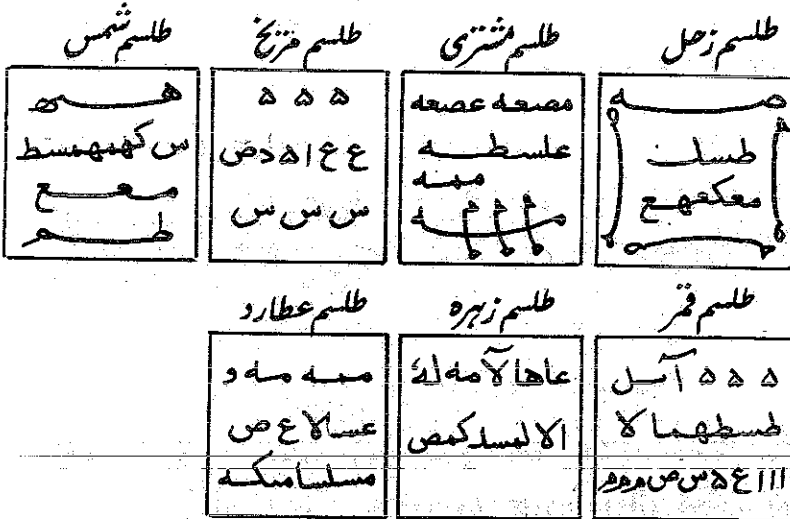 طلسم زحل
صــه
طسلت
معکعهع
طلسم مشتری
مصعه عصعه
علسطــه
ممــه
طلسم مریخ
۵ ۵ ۵
ع ع ا ۵ د ص
س س س
طلسم شمس
هــه
س کهمهمسط
معــع
طــم
طلسم قمر
۵ ۵ ۵ آسل
طسطهمالا
ااا ع ۵ س ص ممم
طلسم زهره
عاهالآمه له
الالمسدکمص
طلسم عطارد
ممــه مــه و
عسالاع ص
مسلسامکــه